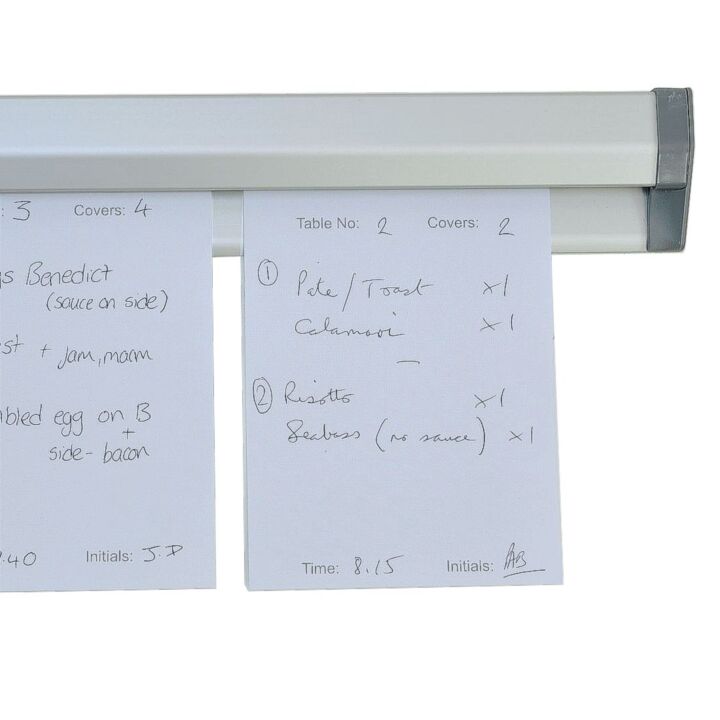 : 3 Covers: 4
gs Benedict
(sauce on side)
st + jam, marm
bled egg on B
+
side - bacon
.40 Initials: J.D
Table No: 2 Covers: 2
① Pate / Toast x1
Calamari x1
—
② Risotto x1
Seabass (no sauce) x1
Time: 8.15 Initials: AB